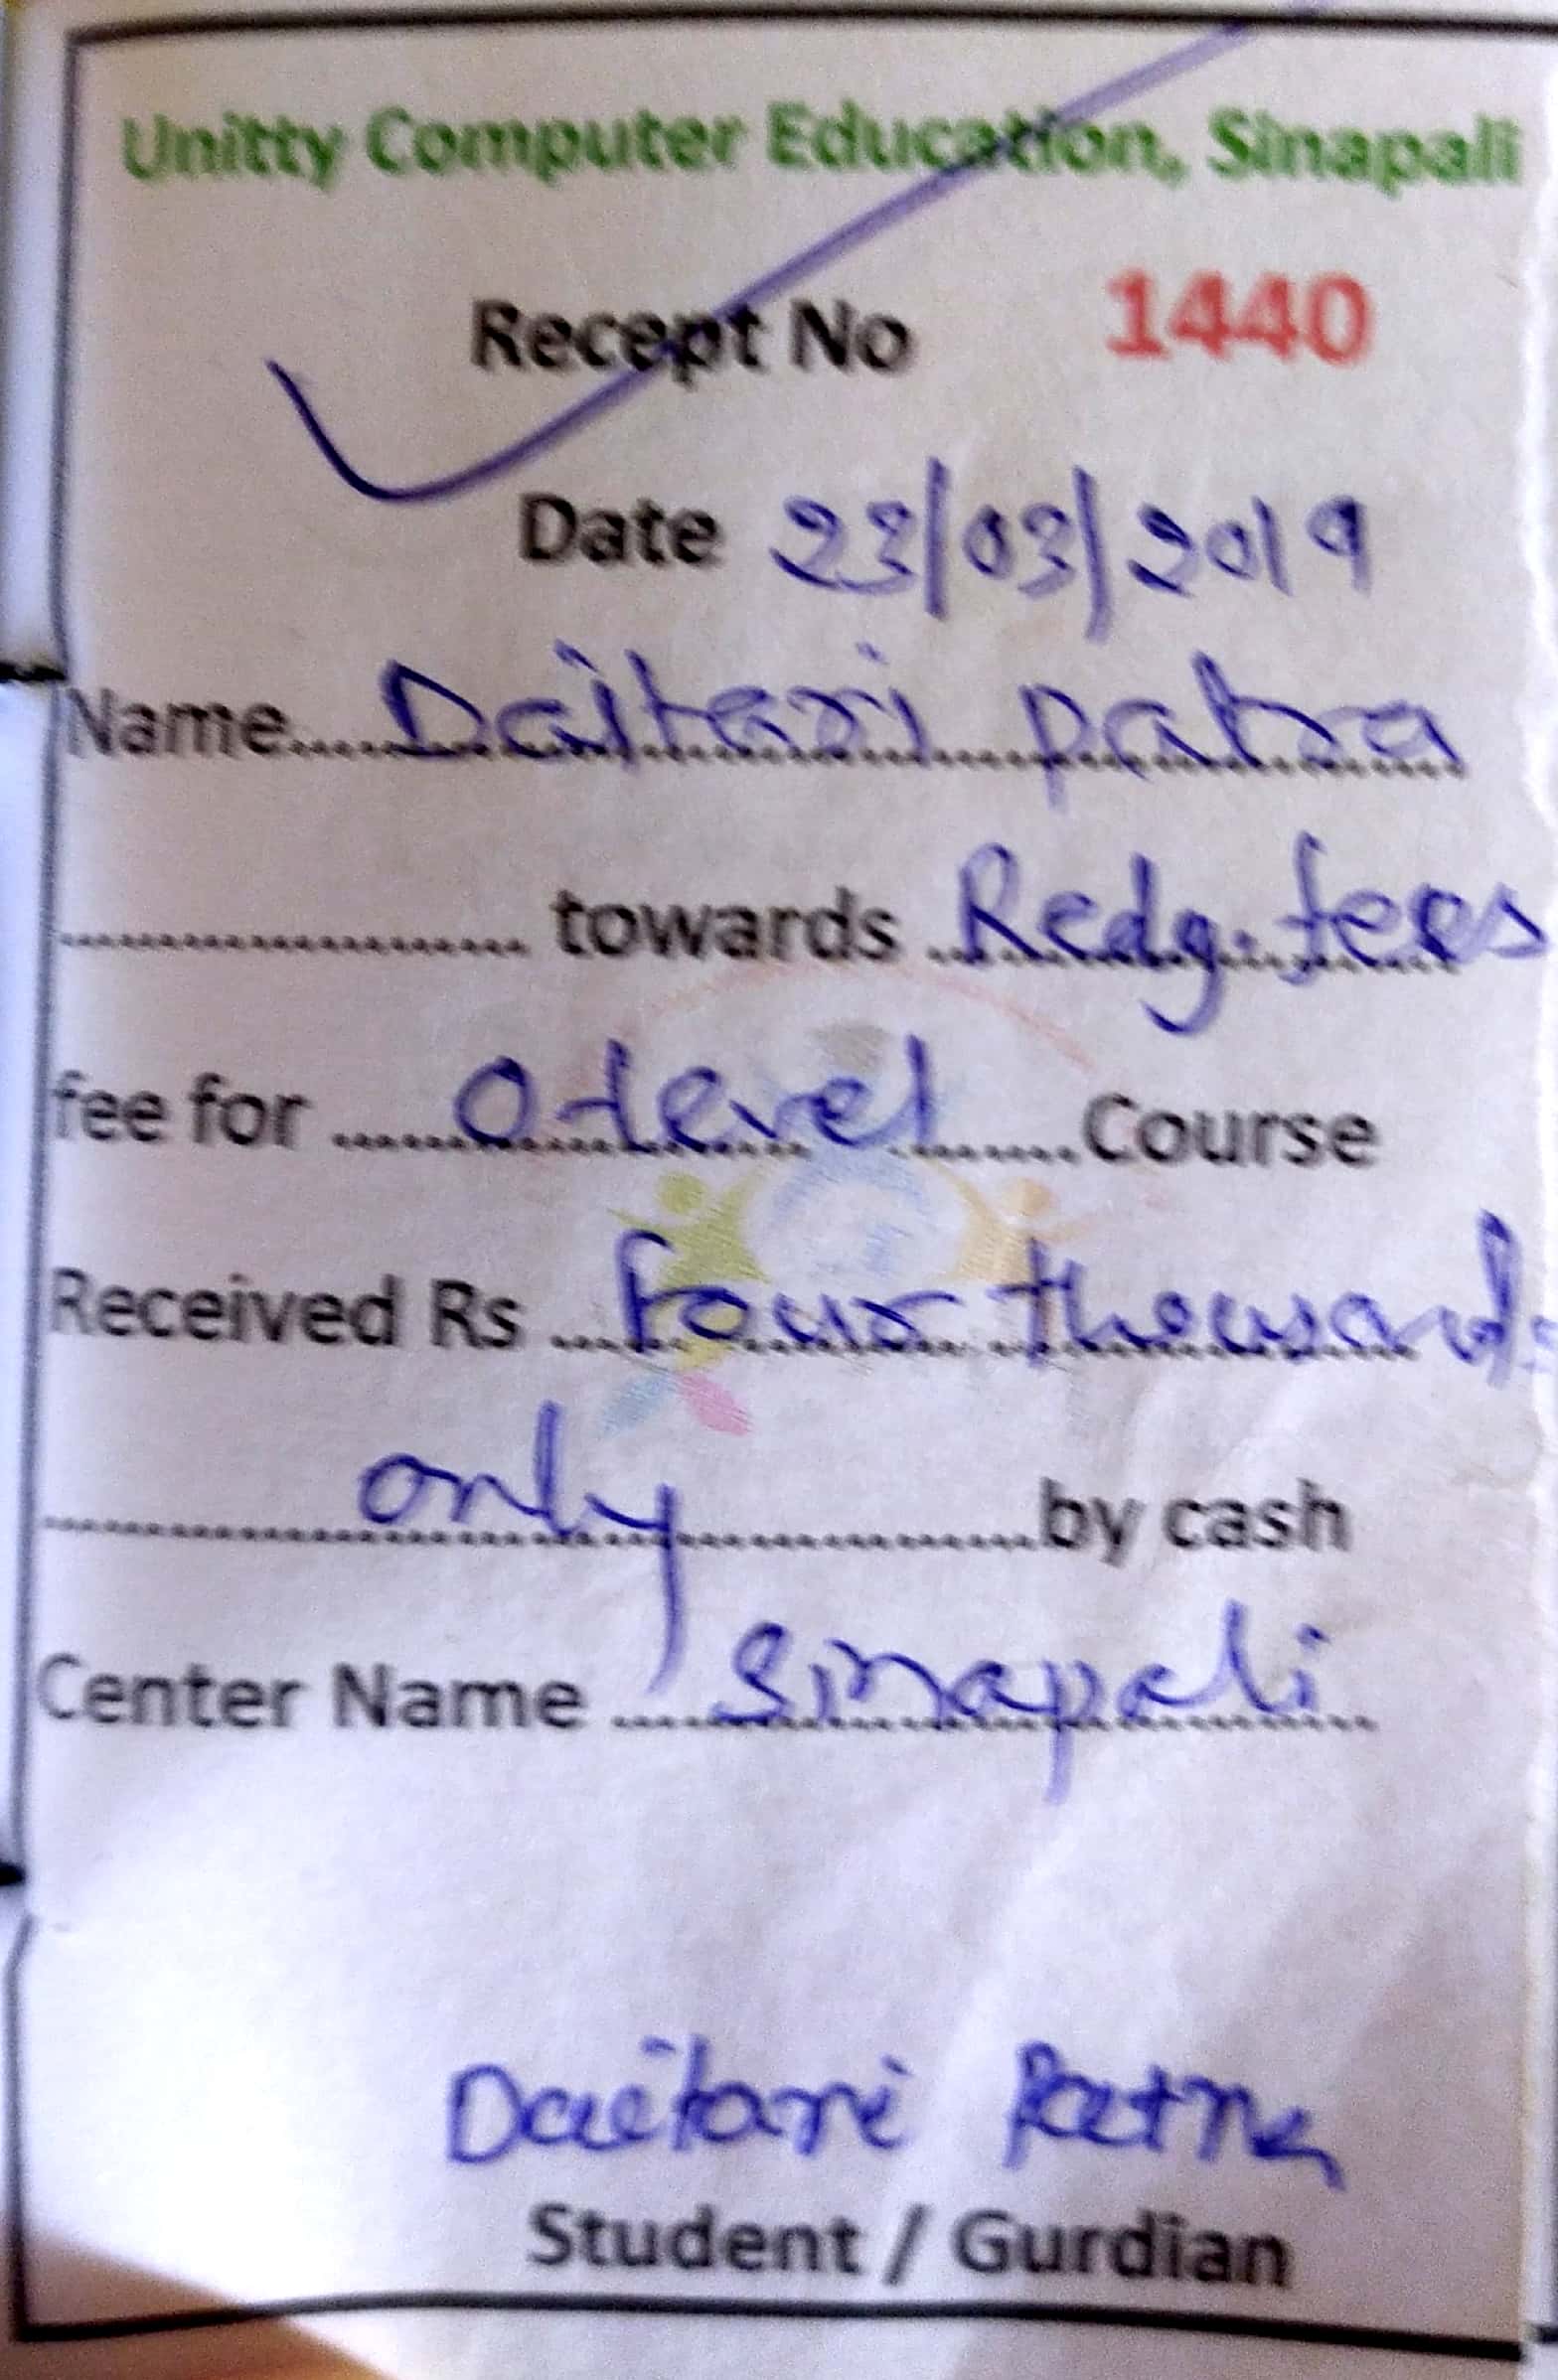 Unitty Computer Education, Sinapali
Recept No 1440
Date 23/03/2019
Name....Daitari patra
.................... towards ..Redg. fees
fee for ........O-level........Course
Received Rs ....Four thousands
..............only...............by cash
Center Name ....Sinapali..
Daitari Patra
Student / Gurdian